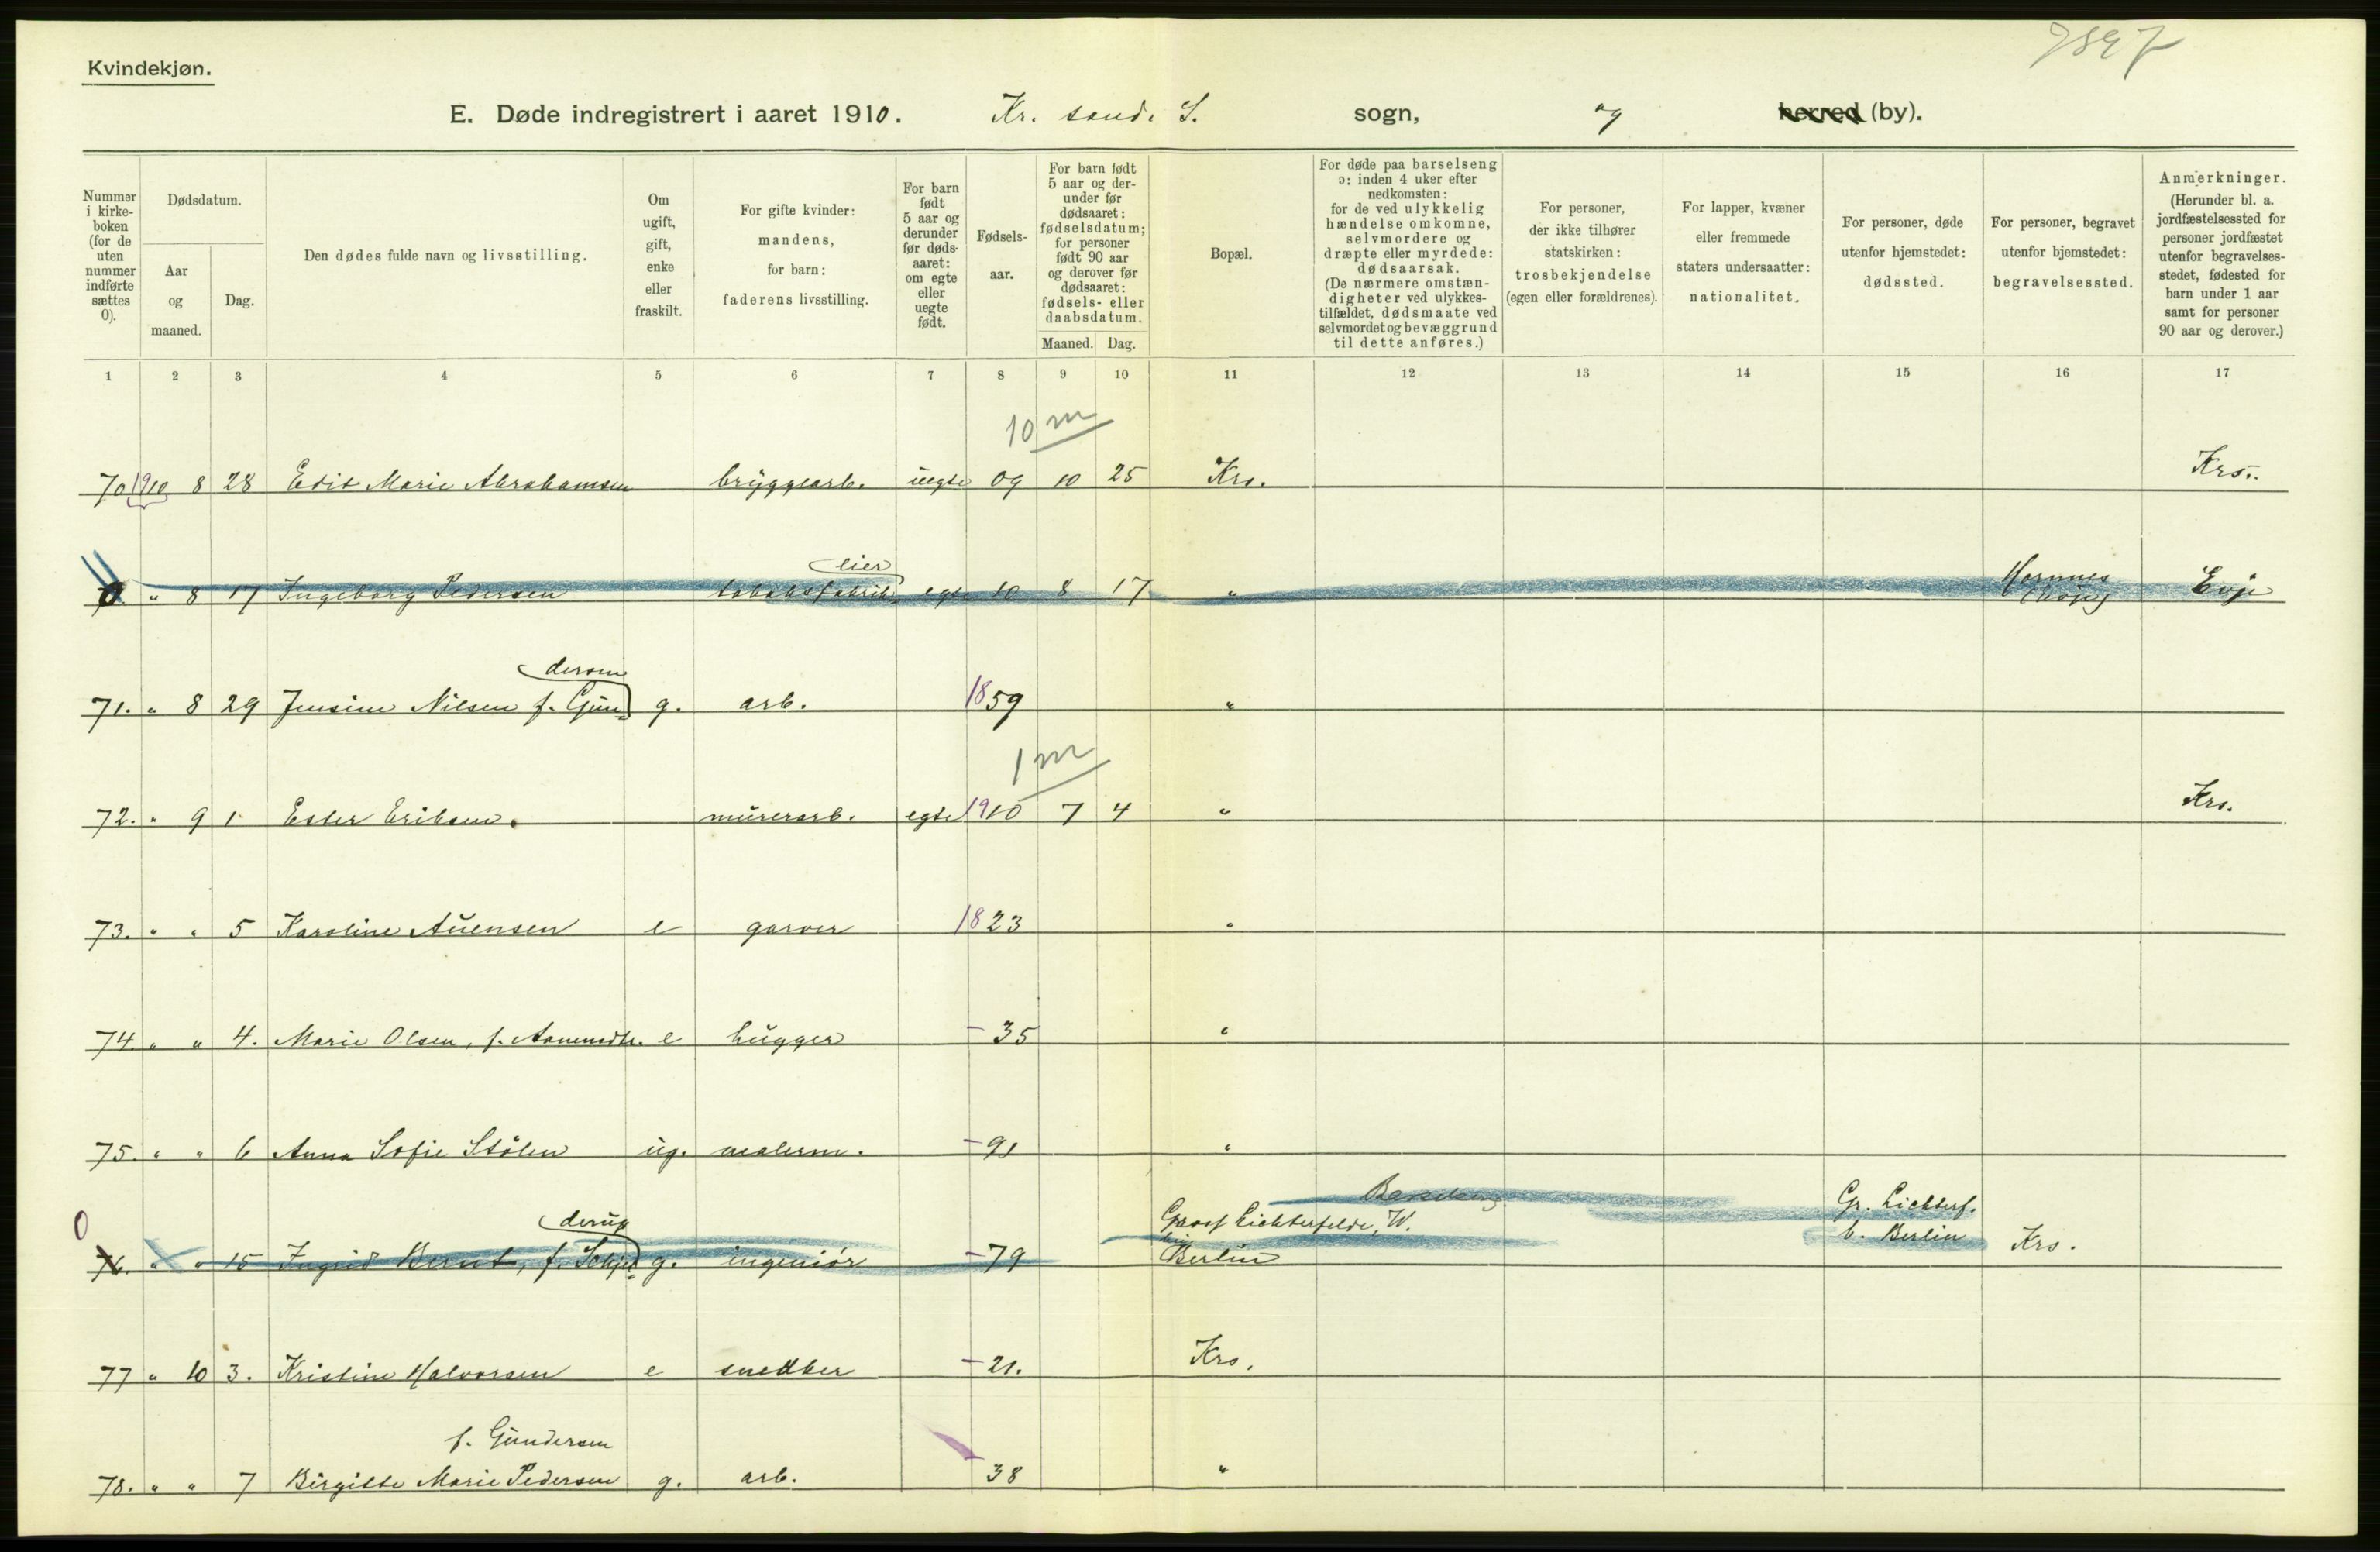 7897
Kvindekjøn.
E. Døde indregistrert i aaret 1910. Kr. sand. S. sogn, og herred (by).
Nummer i kirke-boken (for de uten nummer indførte sættes 0).
Dødsdatum.
Aar og maaned.
Dag.
Den dødes fulde navn og livsstilling.
Om ugift, gift, enke eller fraskilt.
For gifte kvinder: mandens, for barn: faderens livsstilling.
For barn født 5 aar og derunder før døds-aaret: om egte eller uegte født.
Fødsels-aar.
For barn født 5 aar og der-under før dødsaaret: fødselsdatum; for personer født 90 aar og derover før dødsaaret: fødsels- eller daabsdatum.
Maaned. Dag.
Bopæl.
For døde paa barselseng ɔ: inden 4 uker efter nedkomsten: for de ved ulykkelig hændelse omkomne, selvmordere og dræpte eller myrdede: dødsaarsak. (De nærmere omstæn-digheter ved ulykkes-tilfældet, dødsmaate ved selvmordet og bevæggrund til dette anføres.)
For personer, der ikke tilhører statskirken: trosbekjendelse (egen eller forældrenes).
For lapper, kvæner eller fremmede staters undersaatter: nationalitet.
For personer, døde utenfor hjemstedet: dødssted.
For personer, begravet utenfor hjemstedet: begravelsessted.
Anmerkninger. (Herunder bl. a. jordfæstelsessted for personer jordfæstet utenfor begravelses-stedet, fødested for barn under 1 aar samt for personer 90 aar og derover.)
1 2 3 4 5 6 7 8 9 10 11 12 13 14 15 16 17
10 m
70 1910 8 28 Edit Marie Abrahamsen bryggearb. uegte 09 10 25 Krs. Krs.
eier
0 " 8 17 Ingeborg Pedersen tobaksfabrik egte 10 8 17 " Hornnes Evje
dersen
71. " 8 29 Jensine Nilsen f. Gun g. arb. 1859 "
1 m
72. " 9 1 Ester Eriksen. murerarb. egte 1910 7 4 " Krs.
73. " " 5 Karoline Auensen e garver 1823 "
74 " " 4. Marie Olsen, f. Aanensdtr. e hugger - 35 "
75. " " 6 Anna Sofie Stölen ug. malerm. - 91 "
Barselseng
0 derup Gross Lichterfelde, W. Gr. Lichterf.
76. " " 15 Ingrid Bernt, f. Schjel g. ingeniør - 79 Berlin b. Berlin Krs.
77 " 10 3. Kristine Halvorsen e snedker - 21. Krs.
f. Gundersen
78. " " 7 Birgitte Marie Pedersen g. arb. 38 "